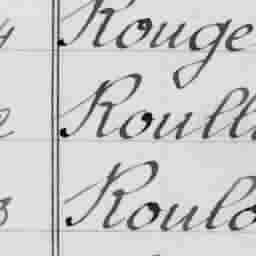 Rouge
Roull
Roulo